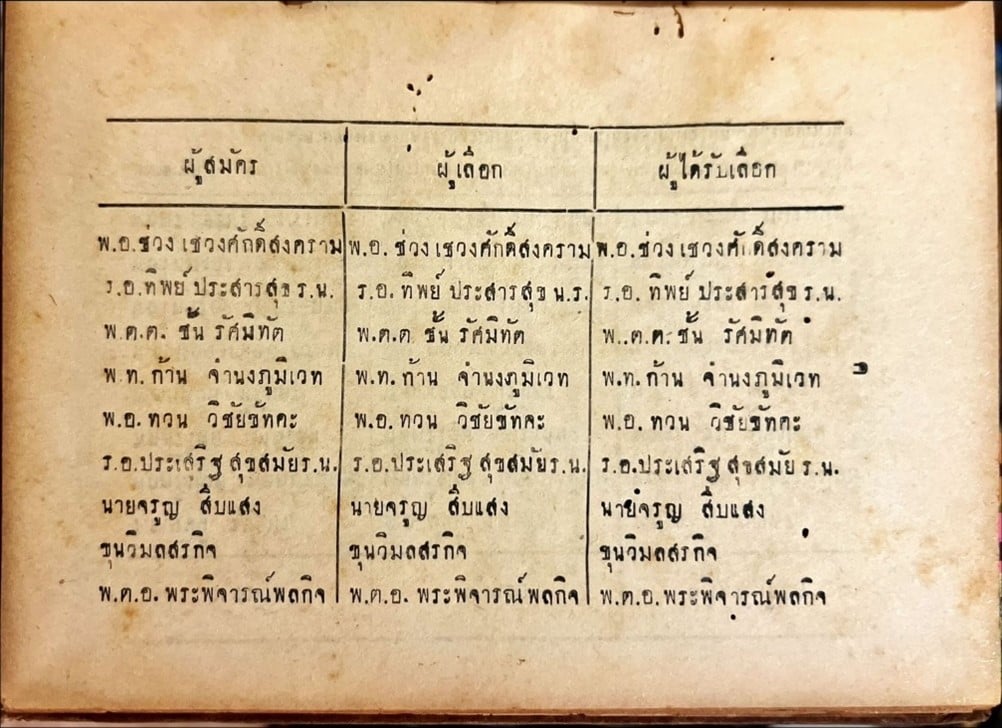 ผู้สมัคร ผู้เลือก ผู้ได้รับเลือก
พ.อ.ช่วง เชวงศักดิ์สงคราม พ.อ. ช่วง เชวงศักดิ์สงคราม พ.อ.ช่วง เชวงศักดิ์สงคราม
ร.อ.ทิพย์ ประสารสุข ร.น. ร.อ. ทิพย์ ประสารสุข น.ร. ร.อ. ทิพย์ ประสารสุข ร.น.
พ.ต.ต. ชั้น รัศมิทัต พ.ต.ต. ชั้น รัศมิทัต พ.ต.ต. ชั้น รัศมิทัต
พ.ท. ก้าน จำนงภูมิเวท พ.ท. ก้าน จำนงภูมิเวท พ.ท. ก้าน จำนงภูมิเวท
พ.อ. ทวน วิชัยขัทคะ พ.อ. ทวน วิชัยขัทคะ พ.อ. ทวน วิชัยขัทคะ
ร.อ.ประเสริฐ สุขสมัย ร.น. ร.อ.ประเสริฐ สุขสมัย ร.น. ร.อ.ประเสริฐ สุขสมัย ร.น.
นายจรูญ สืบแสง นายจรูญ สืบแสง นายจรูญ สืบแสง
ขุนวิมลสรกิจ ขุนวิมลสรกิจ ขุนวิมลสรกิจ
พ.ต.อ. พระพิจารณ์พลกิจ พ.ต.อ. พระพิจารณ์พลกิจ พ.ต.อ. พระพิจารณ์พลกิจ